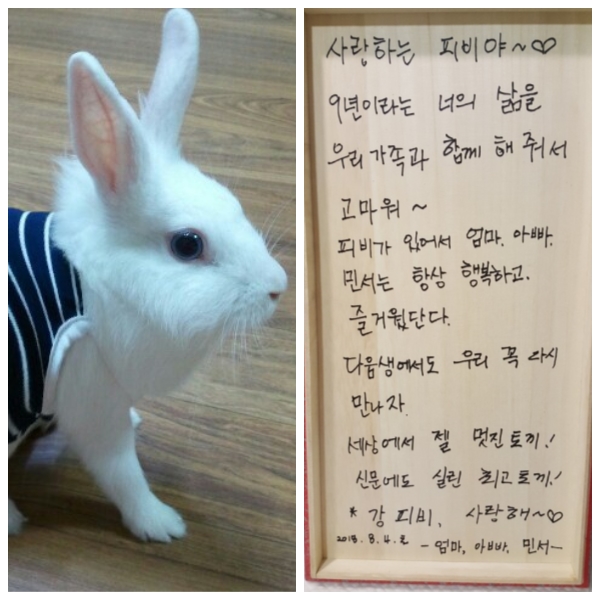 사랑하는 피비야~♡
9년이라는 너의 삶을
우리가족과 함께 해 줘서
고마워~
피비가 있어서 엄마, 아빠,
민서는 항상 행복하고,
즐거웠단다.
다음생에서도 우리 꼭 다시
만나자.
세상에서 젤 멋진토끼!
신문에도 실린 최고토끼!
* 강피비, 사랑해~♡
2018. 8. 4.
- 엄마, 아빠, 민서-